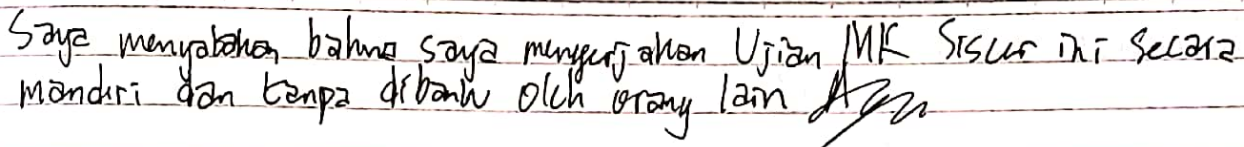 Saya menyatakan bahwa saya mengerjakan Ujian MK Siscur ini secara
mandiri dan tanpa dibantu oleh orang lain